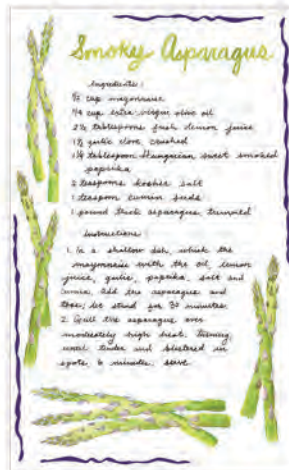 Smoky Asparagus
Ingredients:
cup mayonnaise
1/4 cup extra-virgin olive oil
tablespoons fresh lemon juice
garlic clove crushed
tablespoon Hungarian sweet smoked
paprika
2 teaspoons kosher salt
1 teaspoon cumin seeds
1 pound thick asparagus trimmed
Instructions
1. In a shallow dish, whisk the
mayonnaise with the oil, lemon
juice, garlic, paprika, salt and
cumin. Add the asparagus and
toss; let stand for 30 minutes.
2. Grill the asparagus over
moderately high heat, turning,
until tender and blistered in
spots, 6 minutes. serve